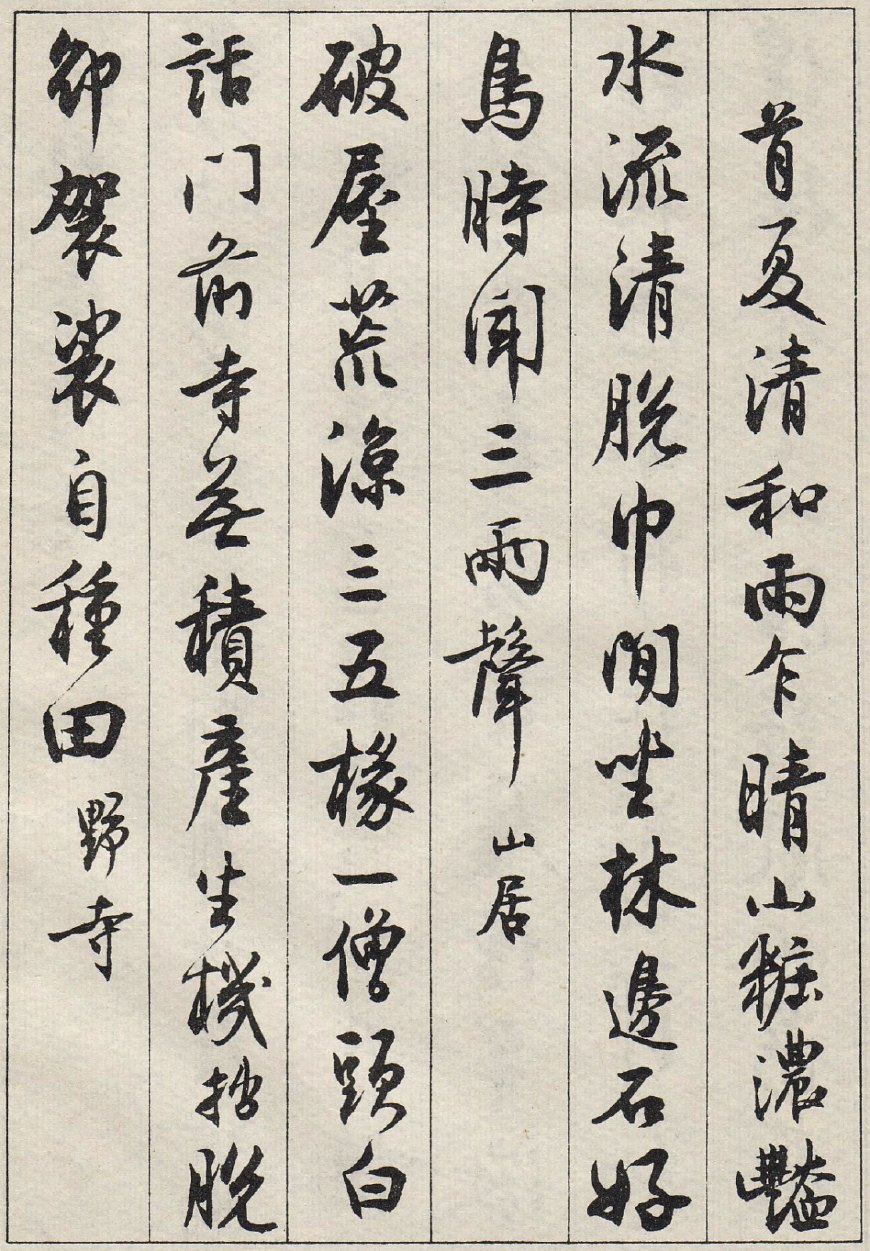 首夏清和雨乍晴山粧濃豔
水流清脫巾閒坐林邊石好
鳥時聞三兩聲 山居
破屋荒涼三五椽一僧頭白
話門前寺無積產生機拙脫
卻袈裟自種田 野寺